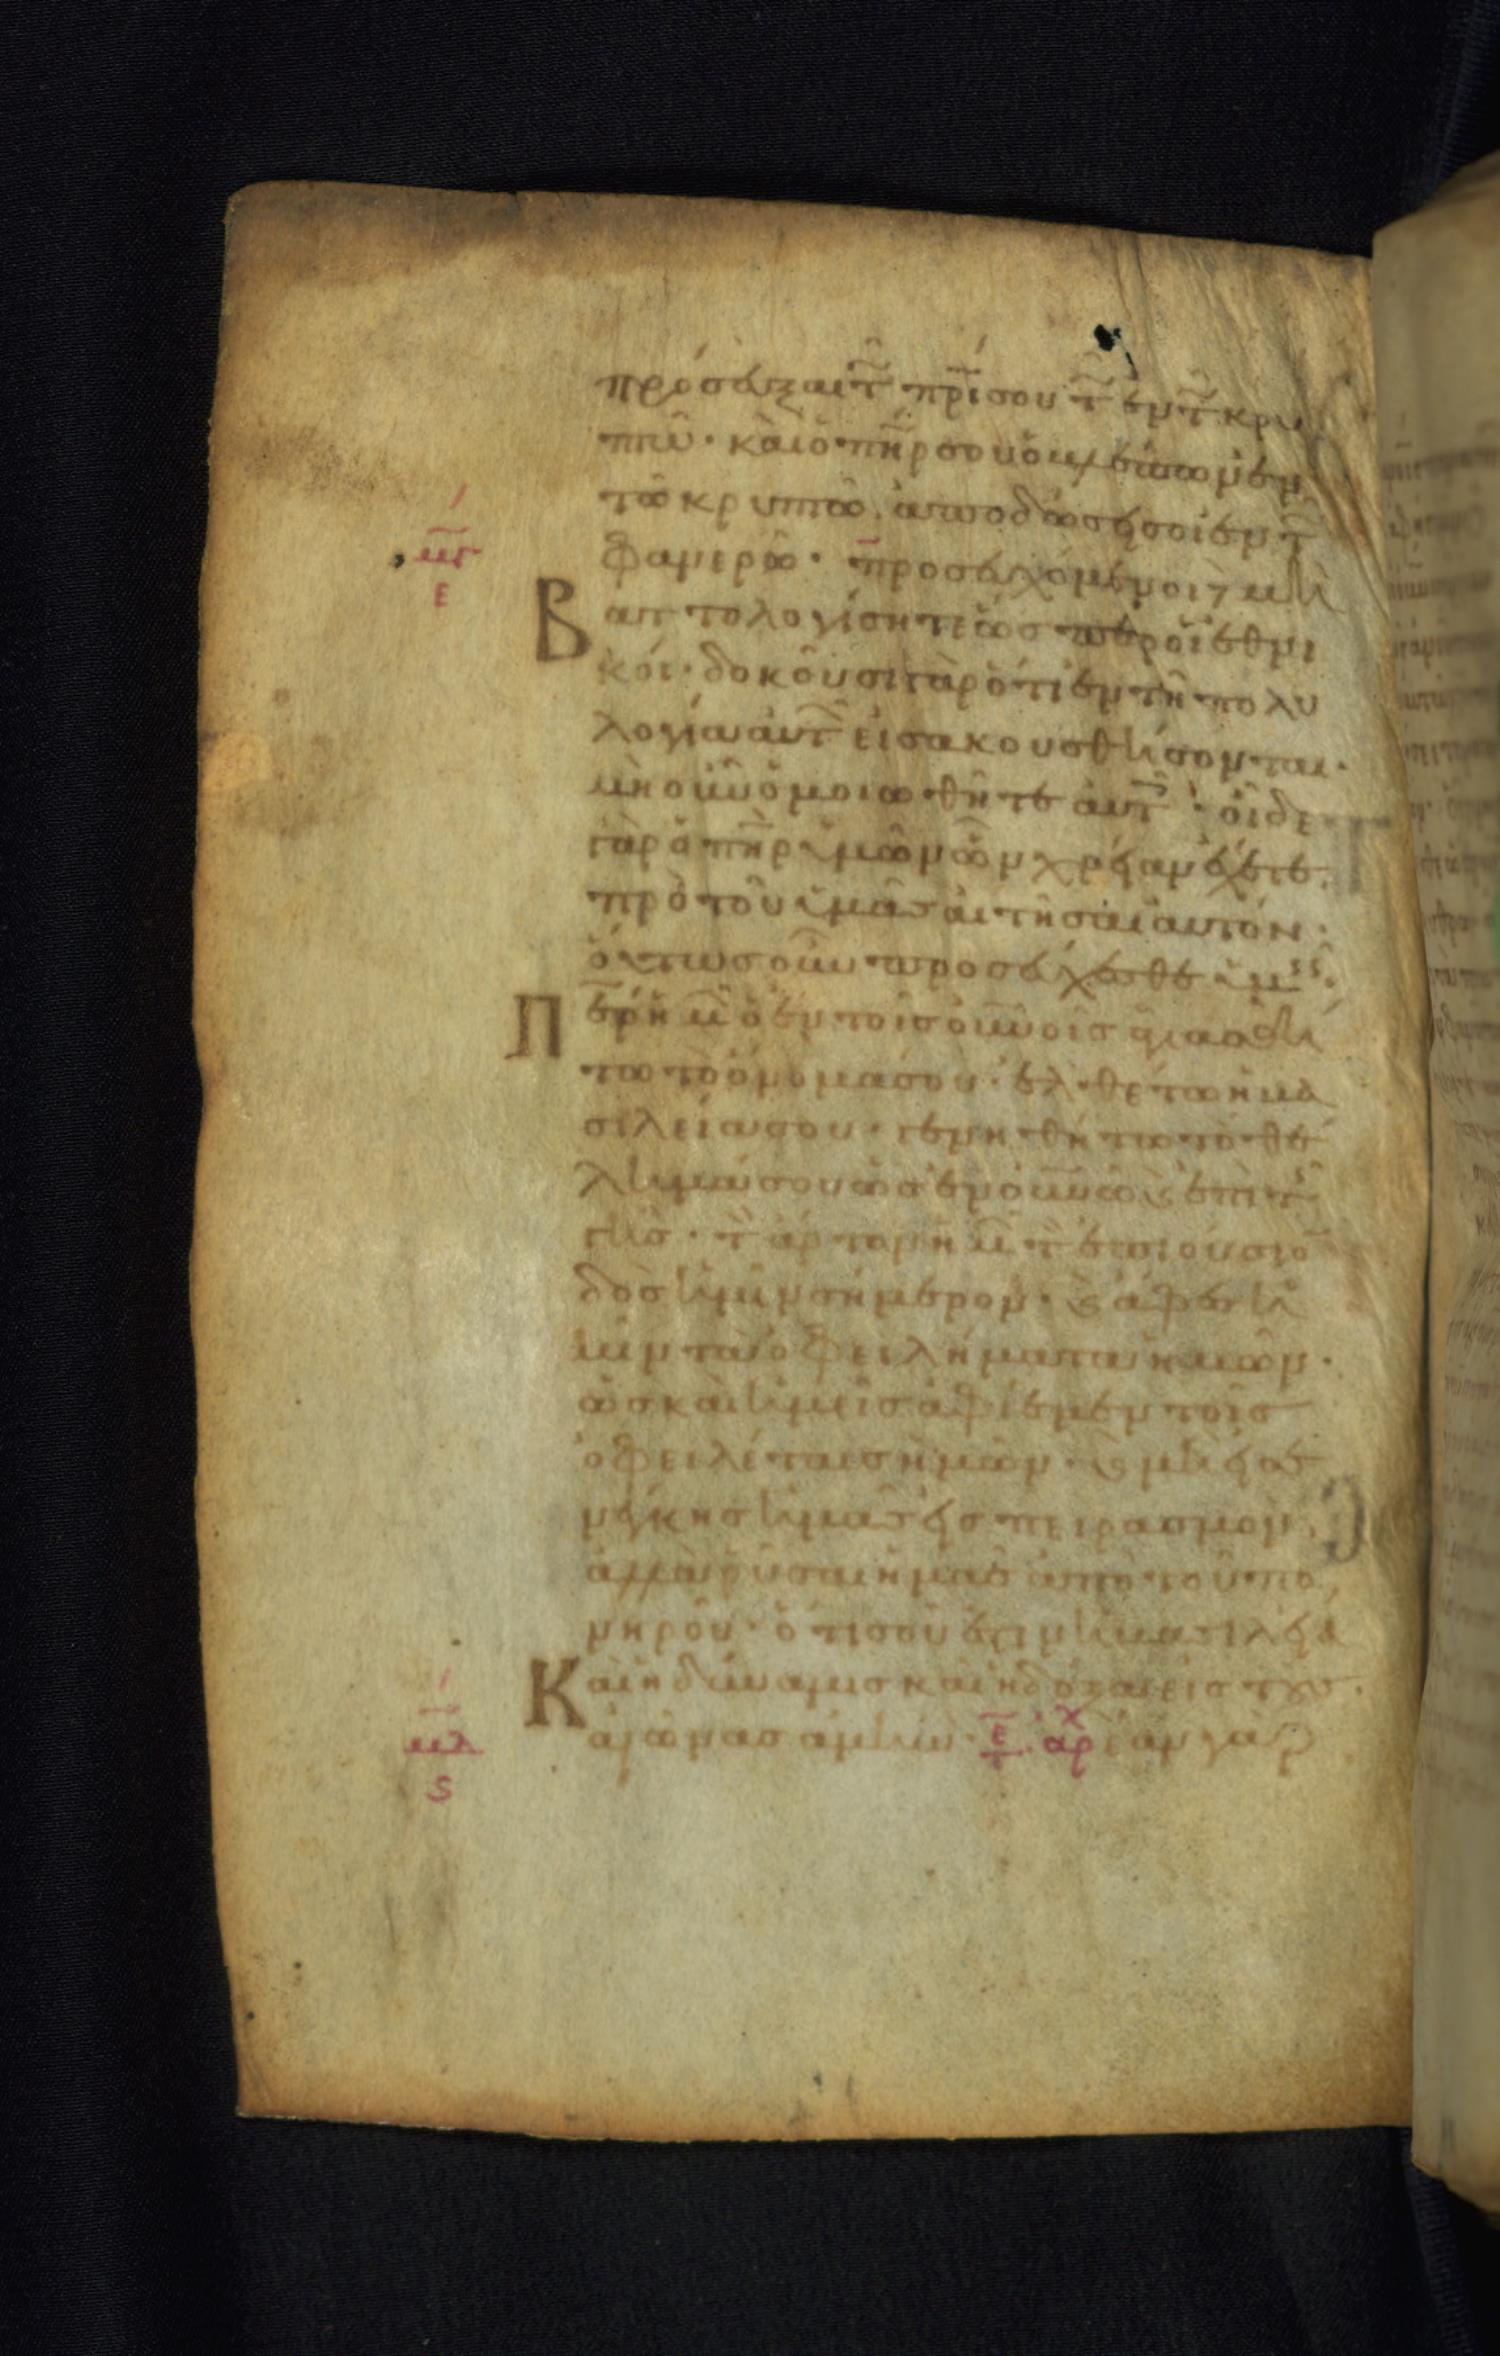 πρόσευξαι τ̃ πρ̅ί σου τ̃ ἐν τ̃ κρυ
πτῶ· καὶ ὁ π̅η̅ρ σου ὁ βλέπων ἐν
τῶ κρυπτῶ, ἀποδώσει σοι ἐν τ̃
φανερῶ· προσευχόμενοι μὴ
μ̅γ̅
ε
Βαττολογίσητε ὥσπερ οἱ ἐθνι
κοί· δοκοῦσι γὰρ ὅτι ἐν τῆ πολυ
λογία αὐτ̃ εἰσακουσθήσονται·
μὴ οὖν ὁμοιωθῆτε αὐτ̃· οἶδε
γὰρ ὁ π̅η̅ρ ὑμῶν ὧν χρείαν ἔχετε
πρὸ τοῦ ὑμᾶς αἰτῆσαι αὐτόν·
οὕτως οὖν προσεύχεσθε ὑμεῖς·
Πε̅ρ ἡμ̃ ὁ ἐν τοῖς οὐ̅νοῖς ἁγιασθή
τω τὸ ὄνομά σου· ἐλθέτω ἡ βα
σιλεία σου· γενηθήτω τὸ θέ
λημά σου ὡς ἐν οὐ̅νῶ καὶ ἐπὶ τ̃
γῆς· τ̃ ἄρτον ἡμ̃ τ̃ ἐπιούσιο̅
δὸς ἡμῖν σήμερον· καὶ ἄφες ἡ
μῖν τὰ ὀφειλήματα ἡμῶν·
ὡς καὶ ἡμεῖς ἀφίεμεν τοῖς
ὀφειλέταις ἡμῶν· καὶ μὴ εἰσε
νέγκης ἡμᾶς εἰς πειρασμόν,
ἀλλὰ ῥῦσαι ἡμᾶς ἀπὸ τοῦ πο
νηροῦ· ὅτι σοῦ ἐστιν ἡ βασιλεία
Καὶ ἡ δύναμις καὶ ἡ δόξα εἰς τοὺς
αἰῶνας ἀμήν· ἀρχ ἐὰν γὰρ
μ̅δ̅
ς